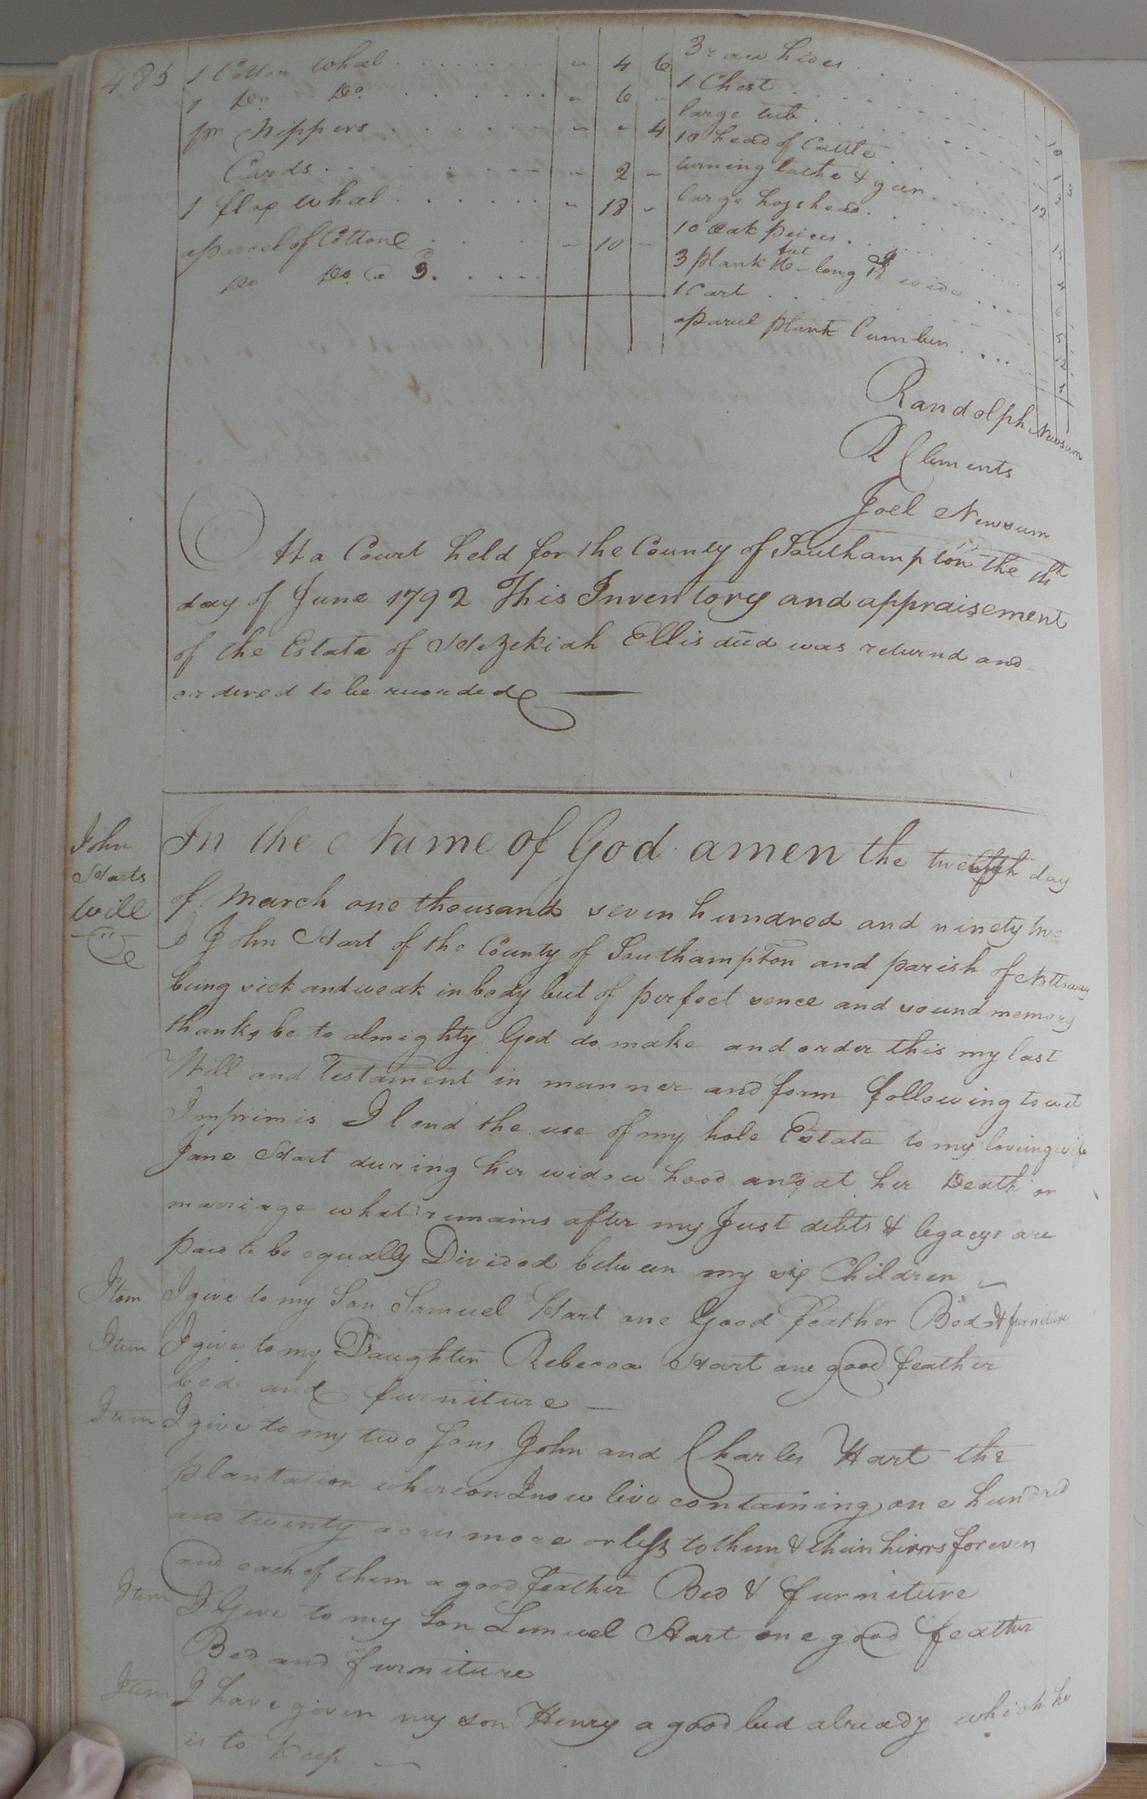 485
1 Cotton Wheel - 4 6
1 Do Do - 6 -
pr Nippers - - 4
Cards - 2 -
1 flax wheel - 18 -
aparcel of Cotton - 10 -
Do Do @ 3.
3 raw hides
1 Chest
large tub
10 head of Cattle
turning lathe & geer
large hogshead
10 Oak peices
3 plank long wide
1 Cart
aparcel plank lumber
Randolph Newsum
R Clements
Joel Newsum
At a Court held for the County of Southampton the 14th
day of June 1792 This Inventory and appraisement
of the Estate of Hezekiah Ellis decd was returnd and
ordered to be recorded
John
Harts
Will
In the Name of God amen the twelfth day
of March one thousand seven hundred and ninety two
I John Hart of the County of Southampton and parish of Nottoway
being sick and weak in body but of perfect sence and sound memory
thanks be to almighty God do make and order this my last
Will and Testament in manner and form following to wit
Imprimis I lend the use of my hole Estate to my loving wife
Jane Hart during her widow hood and at her Death or
marriage what remains after my Just debts & legacys are
paid to be equally Divided between my six Children
Item I give to my Son Samuel Hart one Good Feather Bed & furniture
Item I give to my Daughter Rebecca Hart one good feather
bed and furniture
Item I give to my two Sons John and Charles Hart the
plantation whereon I now live containing one hundred
and twenty acres more or less to them & their hirrs forever
and each of them a good feather Bed & furniture
Item I Give to my Son Lemuel Hart one good feather
Bed and furniture
Item I have given my son Henry a good bed already which he
is to keep